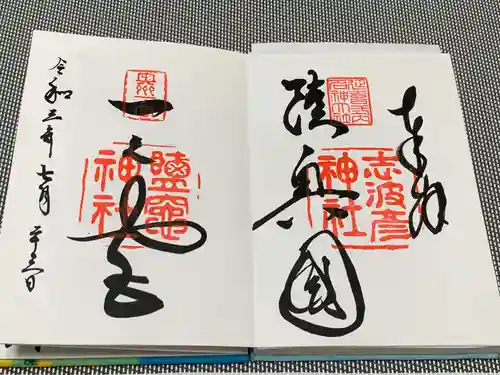 奉拝
延喜式
名神大社
陸奥國
志波彦
神社
一之宮
鹽竈
神社
令和三年七月廿三日